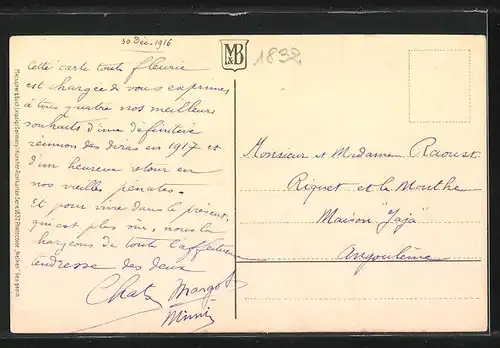 30 Déc. 1916
MB
&
1832
Cette carte toute fleurie
est chargée de vous exprimer
à tous quatre nos meilleurs
souhaits d'une définitive
réunion des diras en 1917 et
d'un heureux retour en
nos vieilles pénates.
Et pour vivre dans le présent,
qui est plus sûr, nous la
chargeons de toute l'affectueuse
tendresse des deux
Chats Margot
Mimi
Monsieur et Madame Raoust
Riquet et la Mouthe
Maison "Jaja"
Angoulême